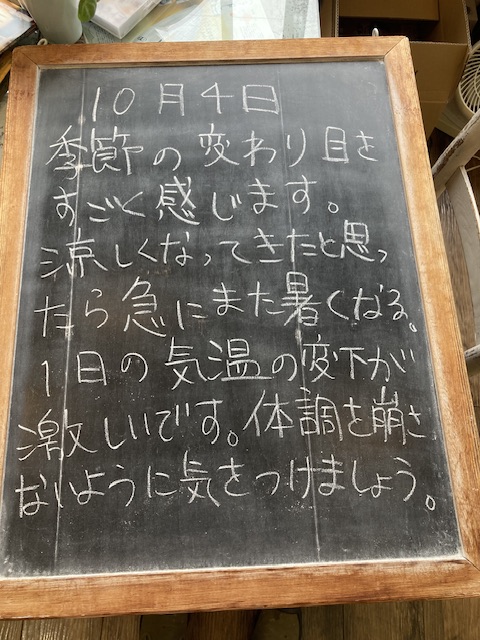 10月4日
季節の変わり目を
すごく感じます。
涼しくなってきたと思っ
たら急にまた暑くなる。
1日の気温の変下が
激しいです。体調を崩さ
ないように気をつけましょう。